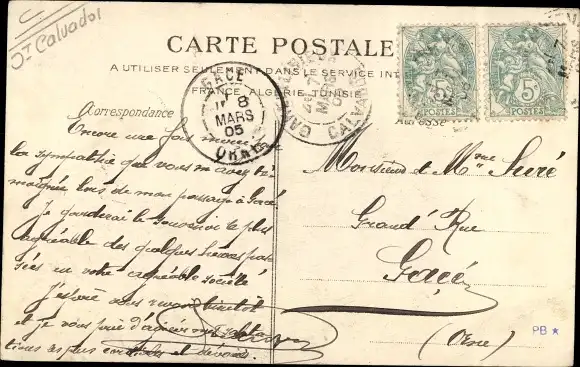 Jt Calvados
CARTE POSTALE
A UTILISER SEULEMENT DANS LE SERVICE INT
FRANCE, ALGERIE, TUNISIE
Correspondance
Adresse
GACE
8
MARS
05
ORNE
CALVADOS
5
POSTES
5
POSTES
Encore une fois merci
la sympathie que vous m'avez té
moignée lors de mon passage à Gacé.
Je garderai le souvenir le plus
agréable des quelques heures pas
sées en votre agréable société
J'espère vous revoir bientôt
et je vous prie d'agréer mes saluta
tions les plus cordiales et dévouées.
Monsieur et Mme
Grand'Rue
Gacé
(Orne)
PB ★